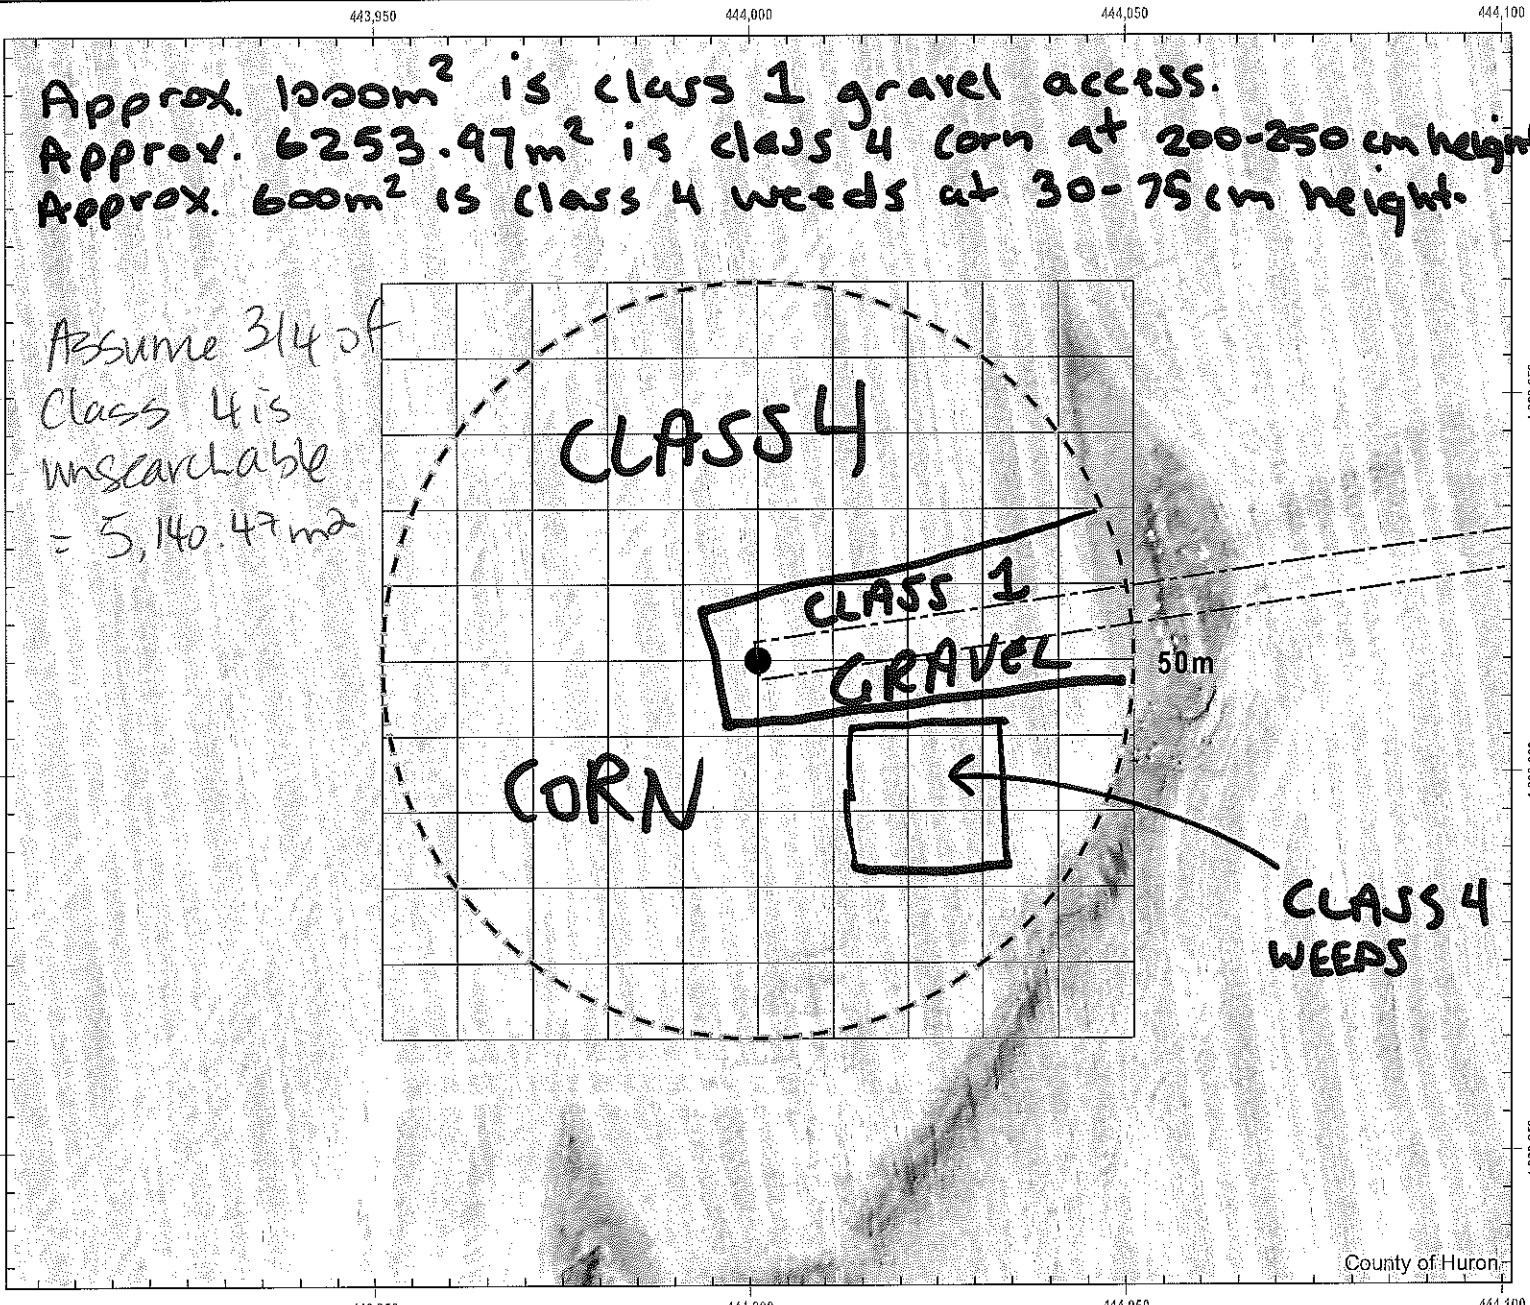 443,950 444,000 444,050 444,100
Approx. 1000m² is class 1 gravel access.
Approx. 6253.97m² is class 4 corn at 200-250 cm heigh
Approx. 600m² is class 4 weeds at 30-75cm height.
Assume 3/4 of
Class 4 is
unsearchable
= 5,140.47m²
CLASS 4
CLASS 1
GRAVEL
50m
CORN
CLASS 4
WEEDS
County of Huron